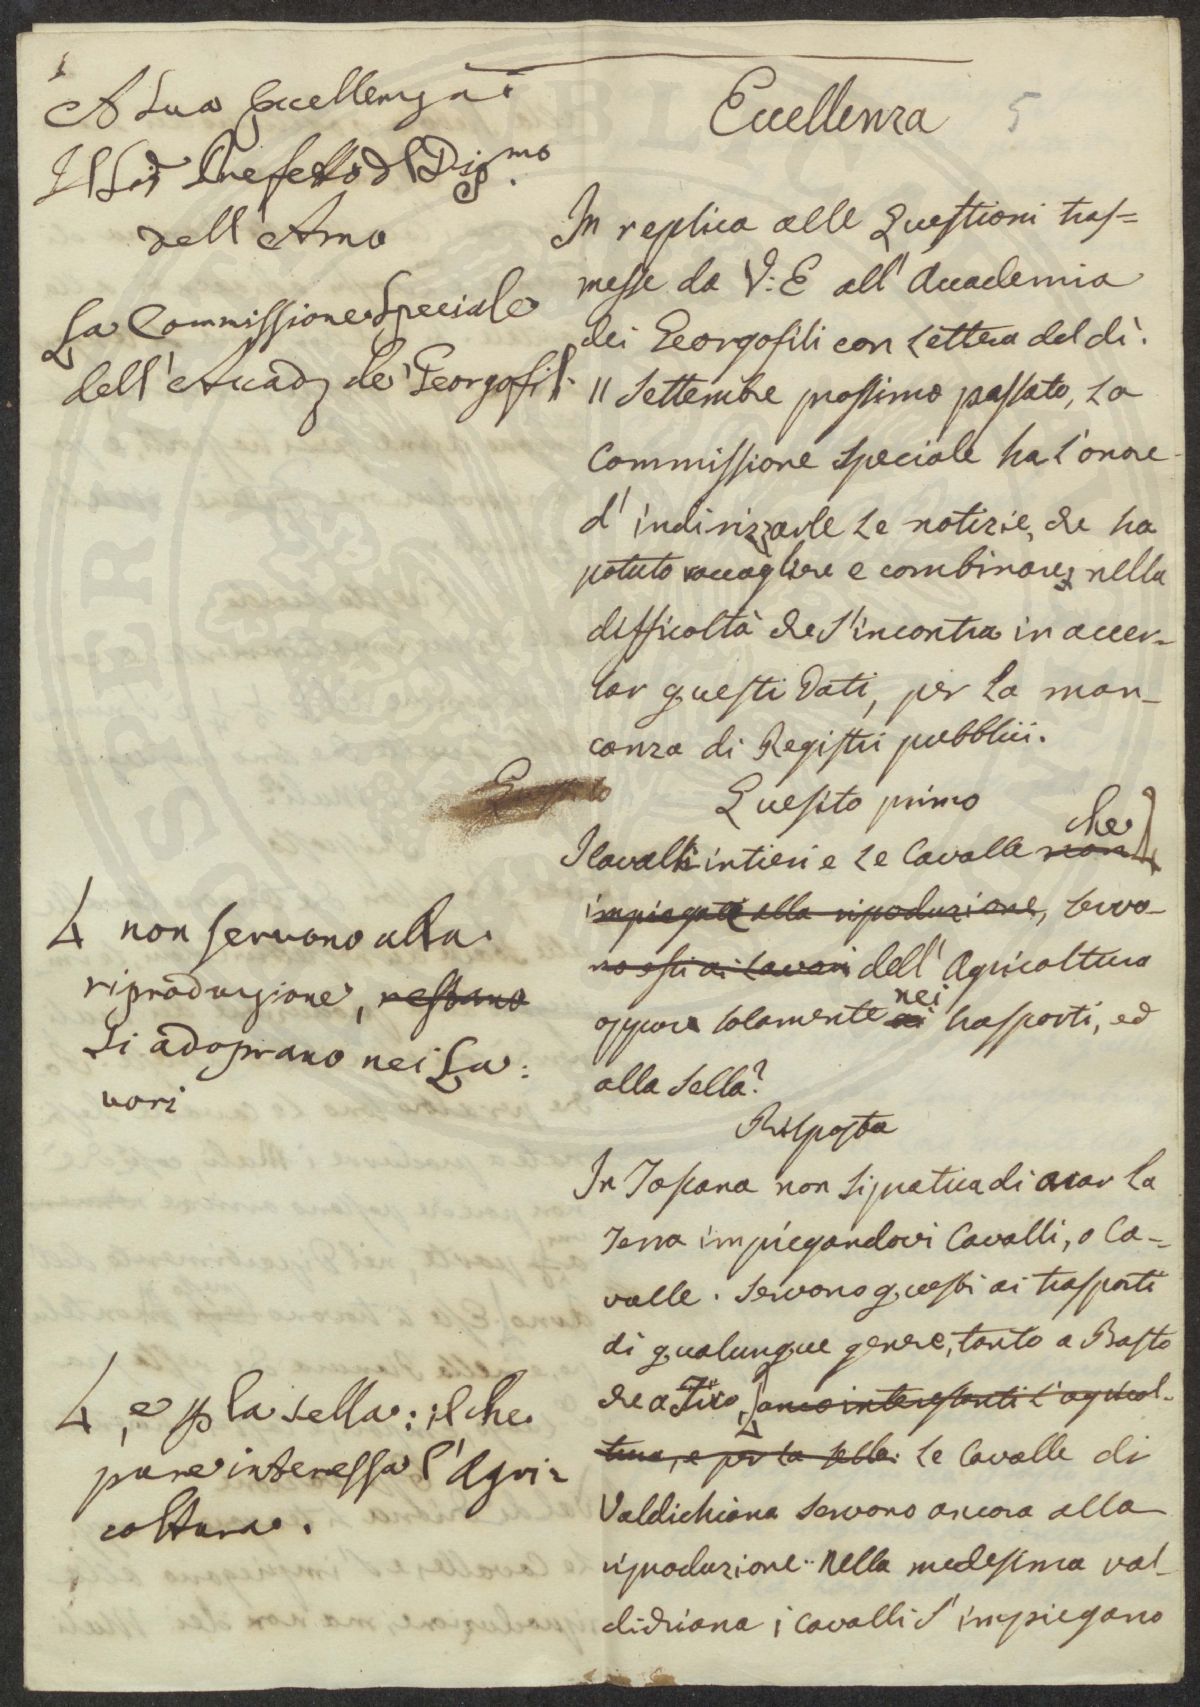 A Sua Eccellenza
Il Sig.r Prefetto del Dip.mo
dell' Arno
La Commissione Speciale
dell' Accad. de' Georgofili
Eccellenza
5
In replica alle Questioni tras=
messe da V: E all' Accademia
dei Georgofili con Lettera del dì.
11 Settembre prossimo passato, La
Commissione Speciale ha l'onore
d' indirizzarle Le notizie, che ha
potuto raccogliere e combinare, nella
difficoltà che s'incontra in accer-
tar questi Dati, per La man-
canza di Registri pubblici.
Quesito primo
I Cavalli intieri e Le Cavalle non che
impiegati alla riproduzione, servo-
no essi ai Lavori dell' Agricoltura
oppure solamente ai nei trasporti, ed
alla Sella?
4 non servono alla
riproduzione, restano
Si adoprano nei La:
vori
Risposta
In Toscana non si pratica di arar La
Terra impiegandovi Cavalli, o Ca-
valle. Servono questi ai trasporti
di qualunque genere, tanto a Basto
che a Tiro, anco interessanti l'agricol-
tura, e per La sella. Le Cavalle di
Valdichiana servono ancora alla
riproduzione.. Nella medesima val
dichiana i Cavalli s' impiegano
4, e p la sella: il che
pure interessa l' Agri=
coltura.